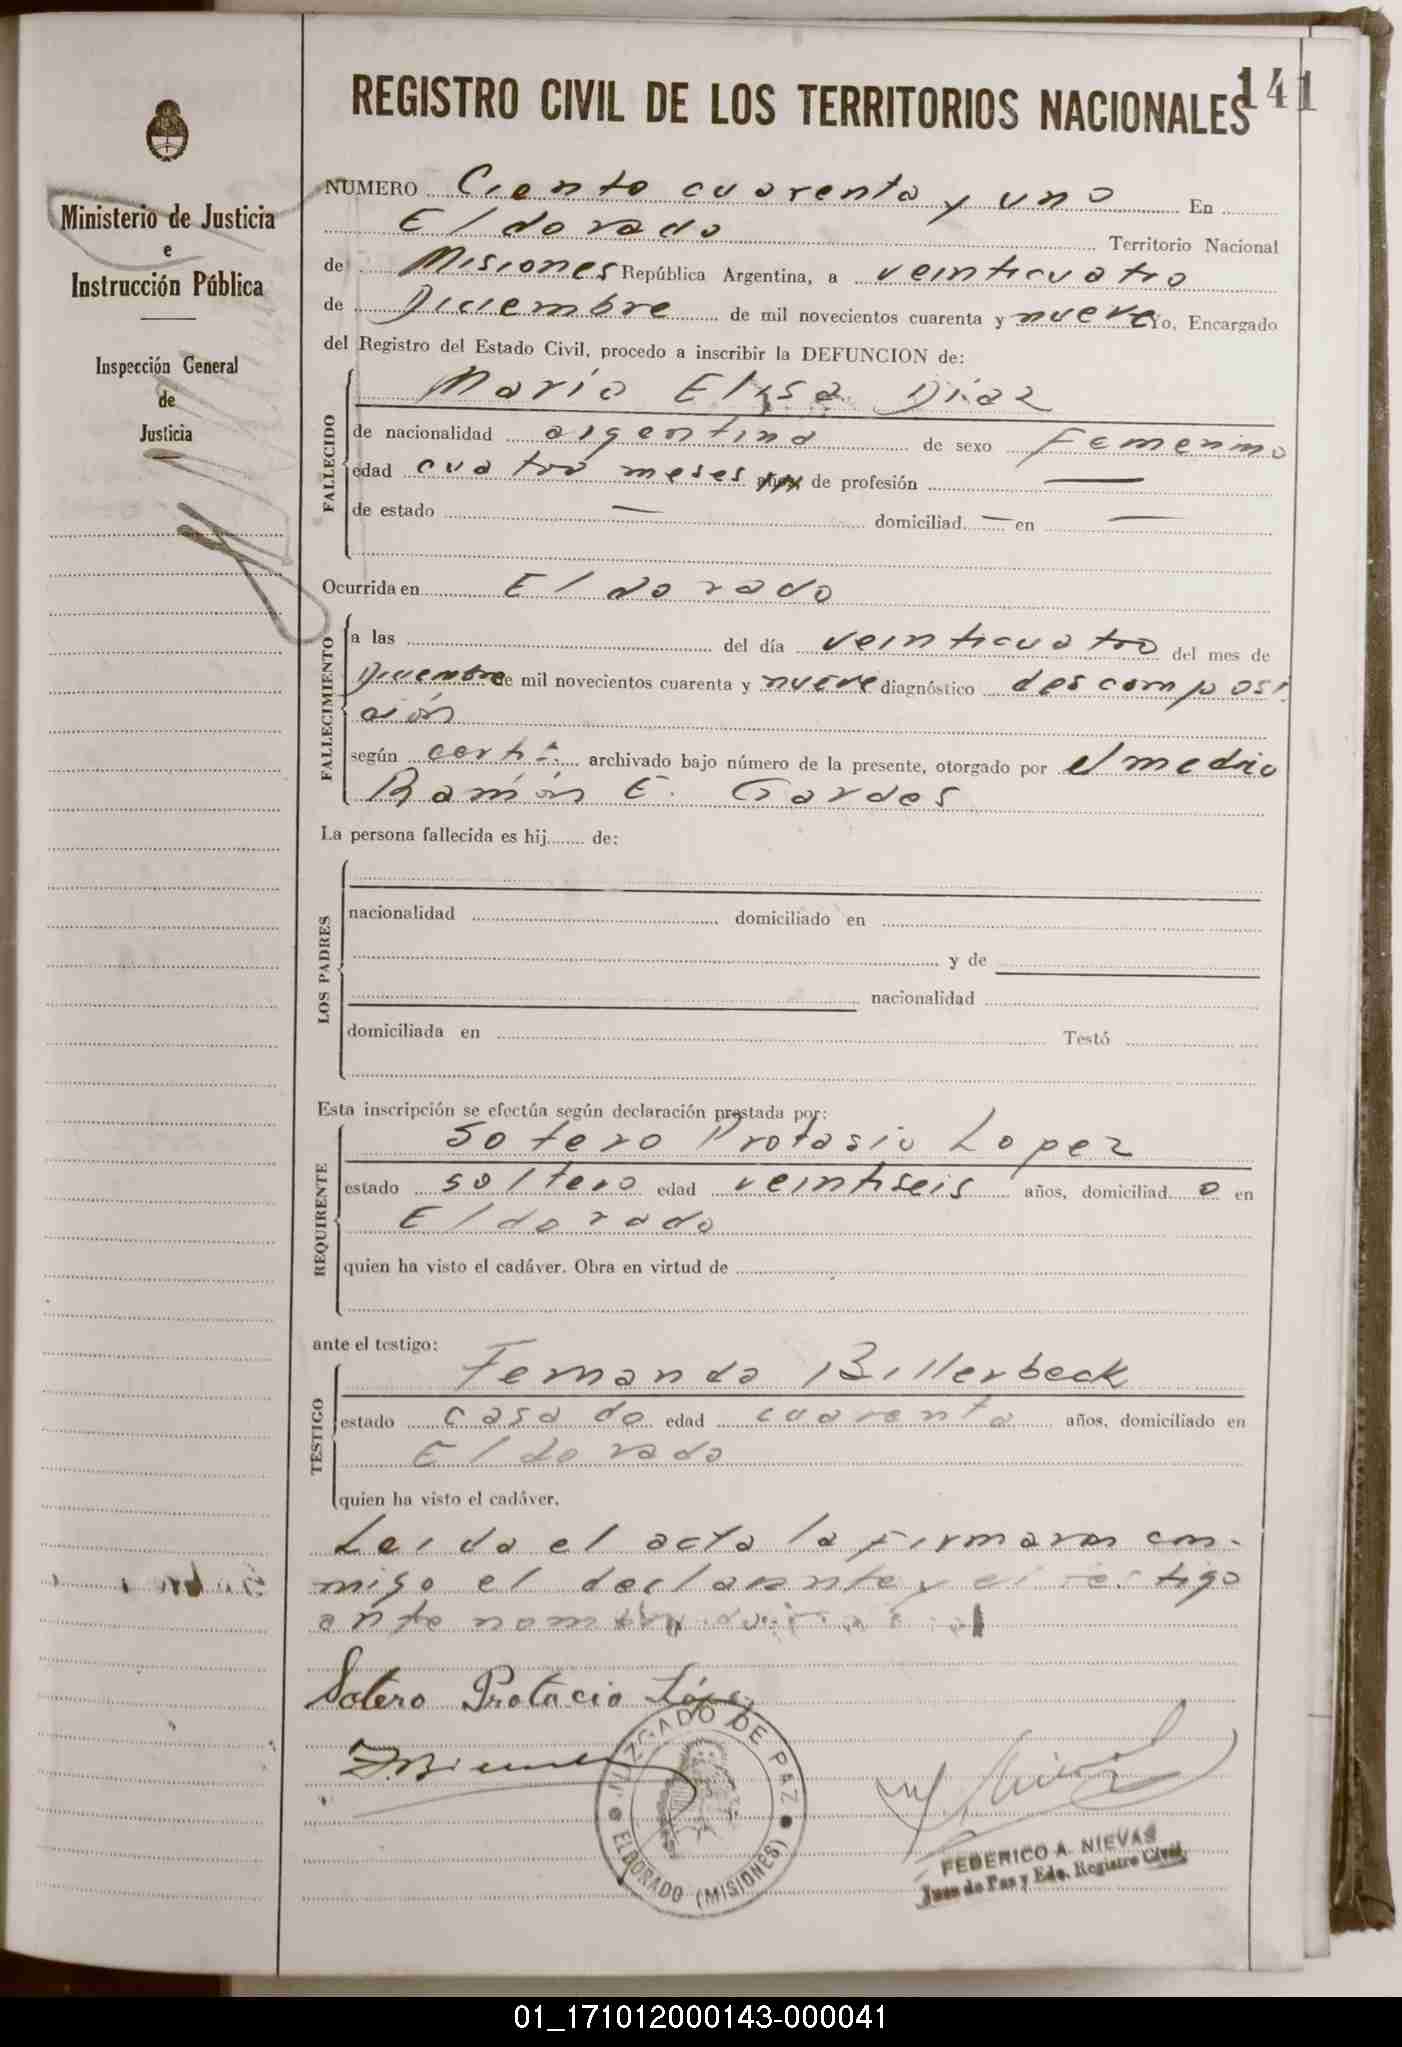 REGISTRO CIVIL DE LOS TERRITORIOS NACIONALES
141
Ministerio de Justicia
e
Instrucción Pública
Inspección General
de
Justicia
NUMERO Ciento cuarenta y uno En
Eldorado Territorio Nacional
de Misiones República Argentina, a veinticuatro
de Diciembre de mil novecientos cuarenta y nueve Yo, Encargado
del Registro del Estado Civil, procedo a inscribir la DEFUNCION de:
FALLECIDO
Maria Elisa Diaz
de nacionalidad argentina de sexo Femenino
edad cuatro meses años de profesión —
de estado — domiciliad — en —
Ocurrida en Eldorado
FALLECIMIENTO
a las del día veinticuatro del mes de
Diciembre de mil novecientos cuarenta y nueve diagnóstico descomposi
ción
según certi. archivado bajo número de la presente, otorgado por el medico
Ramón E. Gardes
La persona fallecida es hij........ de:
LOS PADRES
nacionalidad domiciliado en
y de
nacionalidad
domiciliada en Testó
Esta inscripción se efectúa según declaración prestada por:
REQUIRENTE
Sotero Protasio Lopez
estado soltero edad veintiseis años, domiciliad o en
Eldorado
quien ha visto el cadáver. Obra en virtud de
ante el testigo:
TESTIGO
Fernando Billerbeck
estado casado edad cuarenta años, domiciliado en
Eldorado
quien ha visto el cadáver.
Leida el acta la firmaron con-
migo el declarante y el testigo
ante
Sotero Protacio López
JUZGADO DE PAZ
ELDORADO (MISIONES)
FEDERICO A. NIEVAS
Juez de Paz y Edo. Registro Civil
01_171012000143-000041